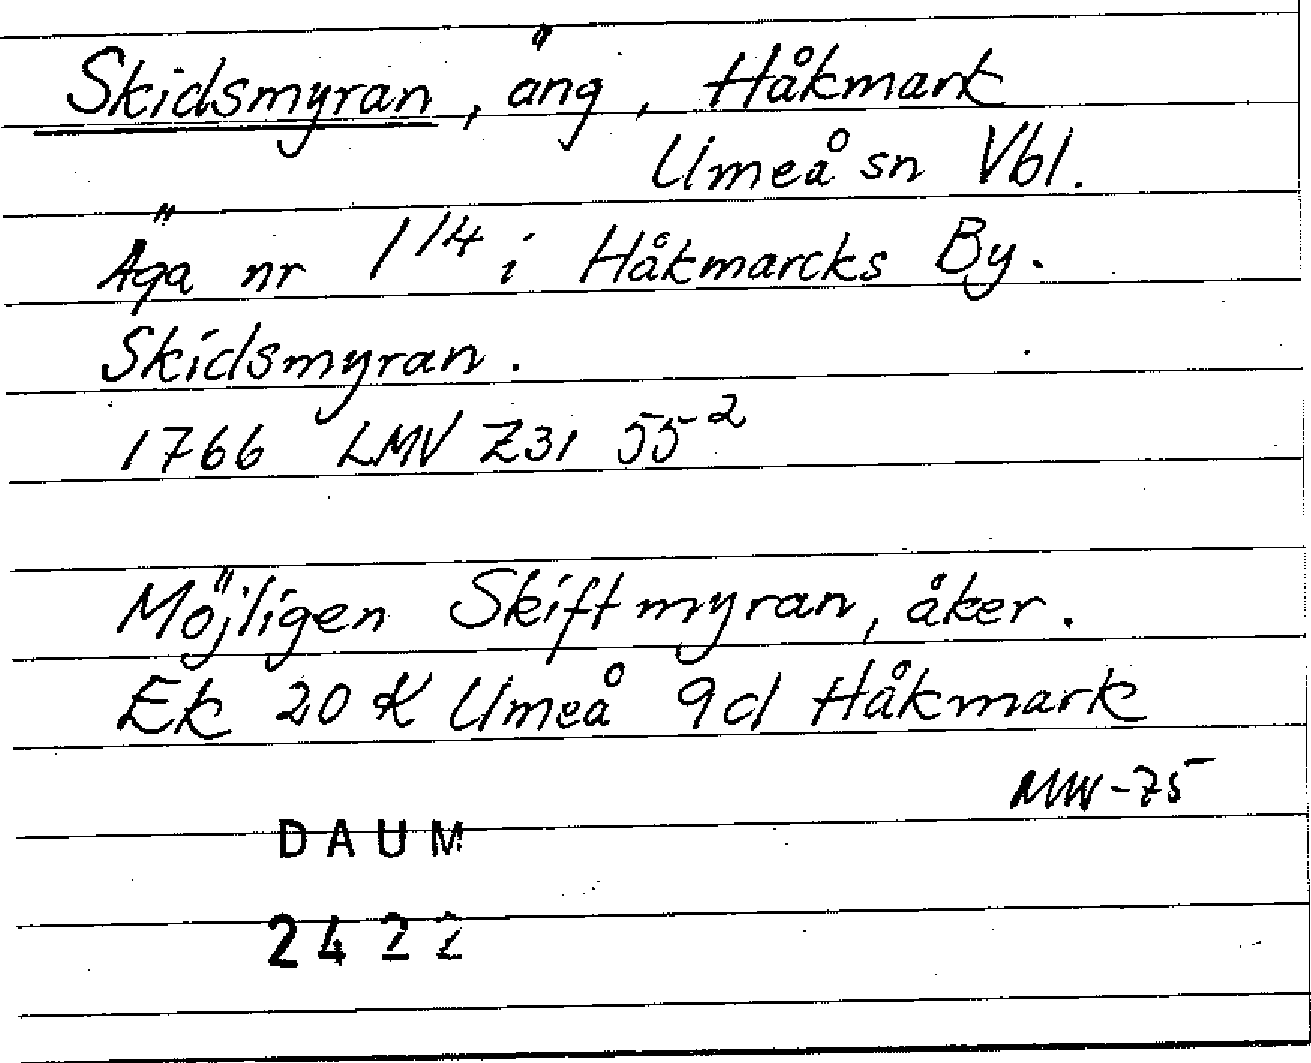 Skidsmyran, äng, Håkmark
Umeå sn Vbl.
Äga nr 114 i Håkmarcks By.
Skidsmyran.
1766 LMV Z31 55²
Möjligen Skiftmyran, åker.
Ek 20 K Umeå 9d Håkmark
MW-75
DAUM
2422